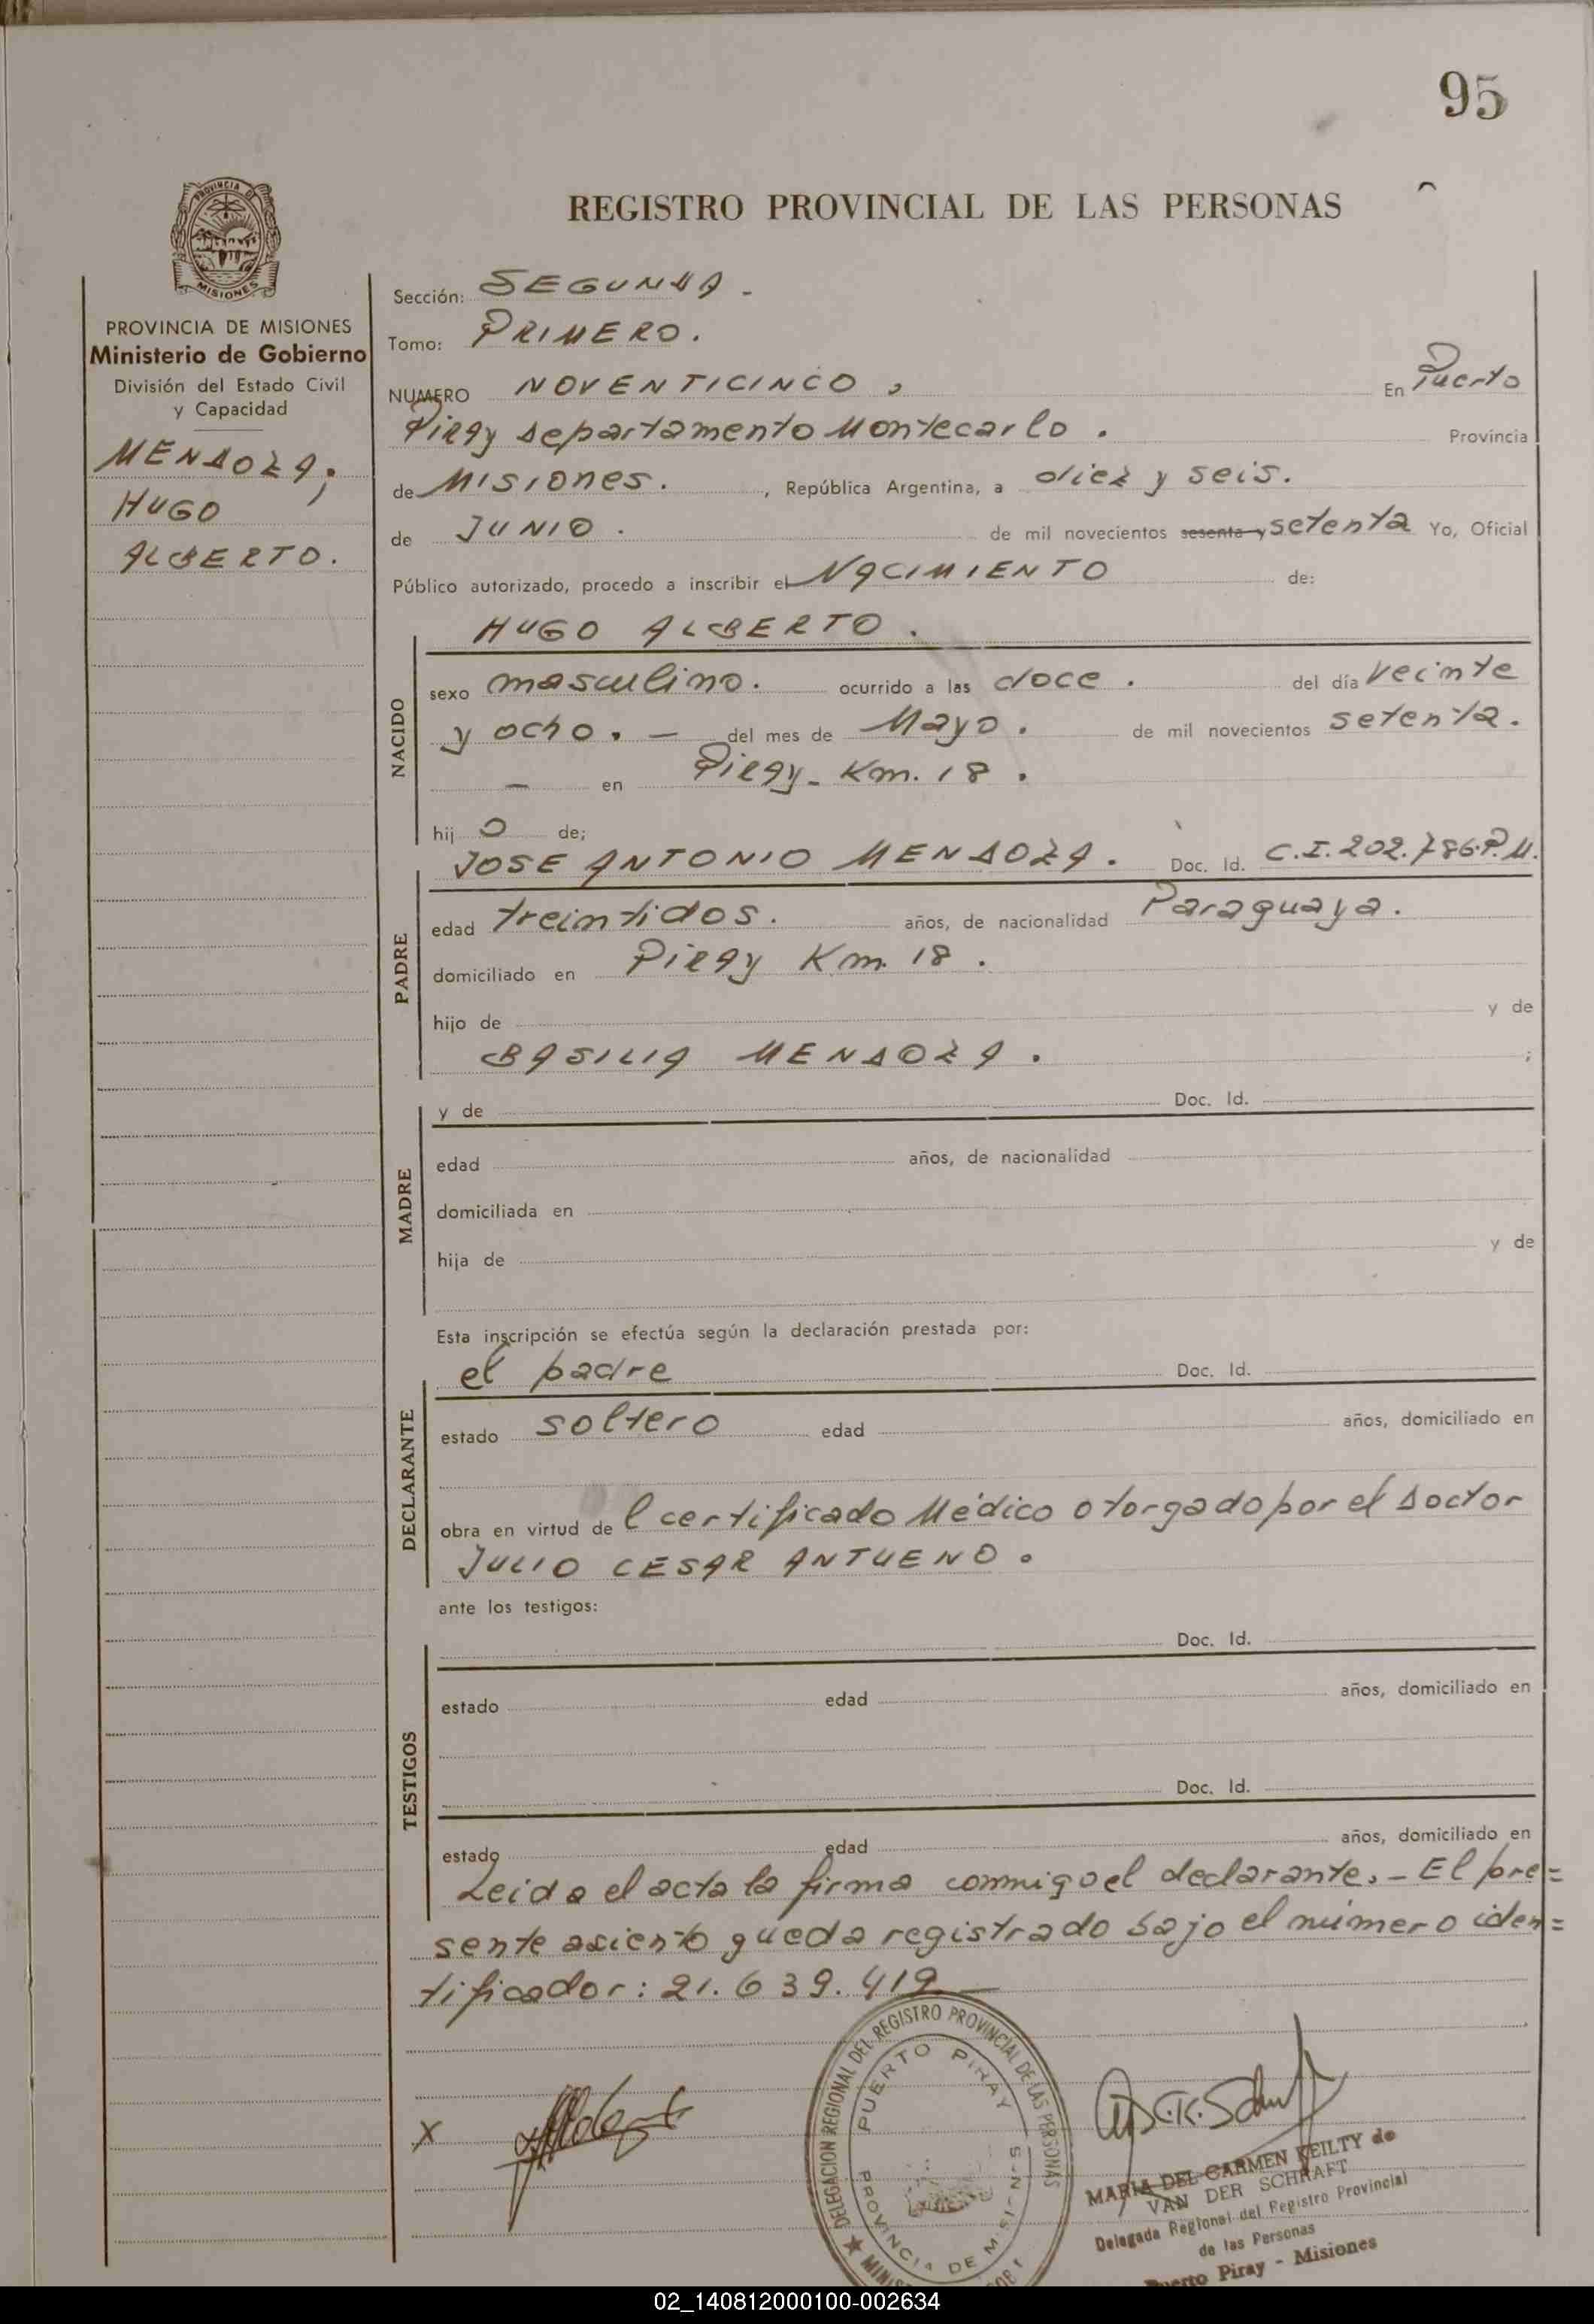 95
REGISTRO PROVINCIAL DE LAS PERSONAS
PROVINCIA DE MISIONES
PROVINCIA DE MISIONES
Ministerio de Gobierno
División del Estado Civil
y Capacidad
MENDOZA,
HUGO
ALBERTO.
Sección: SEGUNDA -
Tomo: PRIMERO.
NUMERO NOVENTICINCO, En Puerto
Piray departamento Montecarlo. Provincia
de Misiones. , República Argentina, a diez y seis.
de JUNIO. de mil novecientos sesenta y setenta Yo, Oficial
Público autorizado, procedo a inscribir el NACIMIENTO de:
HUGO ALBERTO.
NACIDO
sexo masculino. ocurrido a las doce. del día veinte
y ocho. — del mes de Mayo. de mil novecientos setenta.
— en Piray - Km. 18.
hij o de;
JOSE ANTONIO MENDOZA. Doc. Id. C.I. 202.786.P.M.
PADRE
edad treintidos. años, de nacionalidad Paraguaya.
domiciliado en Piray Km. 18.
hijo de y de
BASILIA MENDOZA. ;
y de Doc. Id.
MADRE
edad años, de nacionalidad
domiciliada en
hija de y de
Esta inscripción se efectúa según la declaración prestada por:
el padre Doc. Id.
DECLARANTE
estado soltero edad años, domiciliado en
obra en virtud de l certificado Médico otorgado por el Doctor
JULIO CESAR ANTUENO.
ante los testigos:
Doc. Id.
TESTIGOS
estado edad años, domiciliado en
Doc. Id.
estado edad años, domiciliado en
Leida el acta la firma conmigo el declarante. - El pre=
sente asiento queda registrado bajo el número iden=
tificador: 21.639.419 —
DELEGACION REGIONAL DEL REGISTRO PROVINCIAL DE LAS PERSONAS
PUERTO PIRAY
PROVINCIA DE MISIONES
X
MARIA DEL CARMEN KEILTY de
VAN DER SCHRAFT
Delegada Regional del Registro Provincial
de las Personas
Puerto Piray - Misiones
02_140812000100-002634